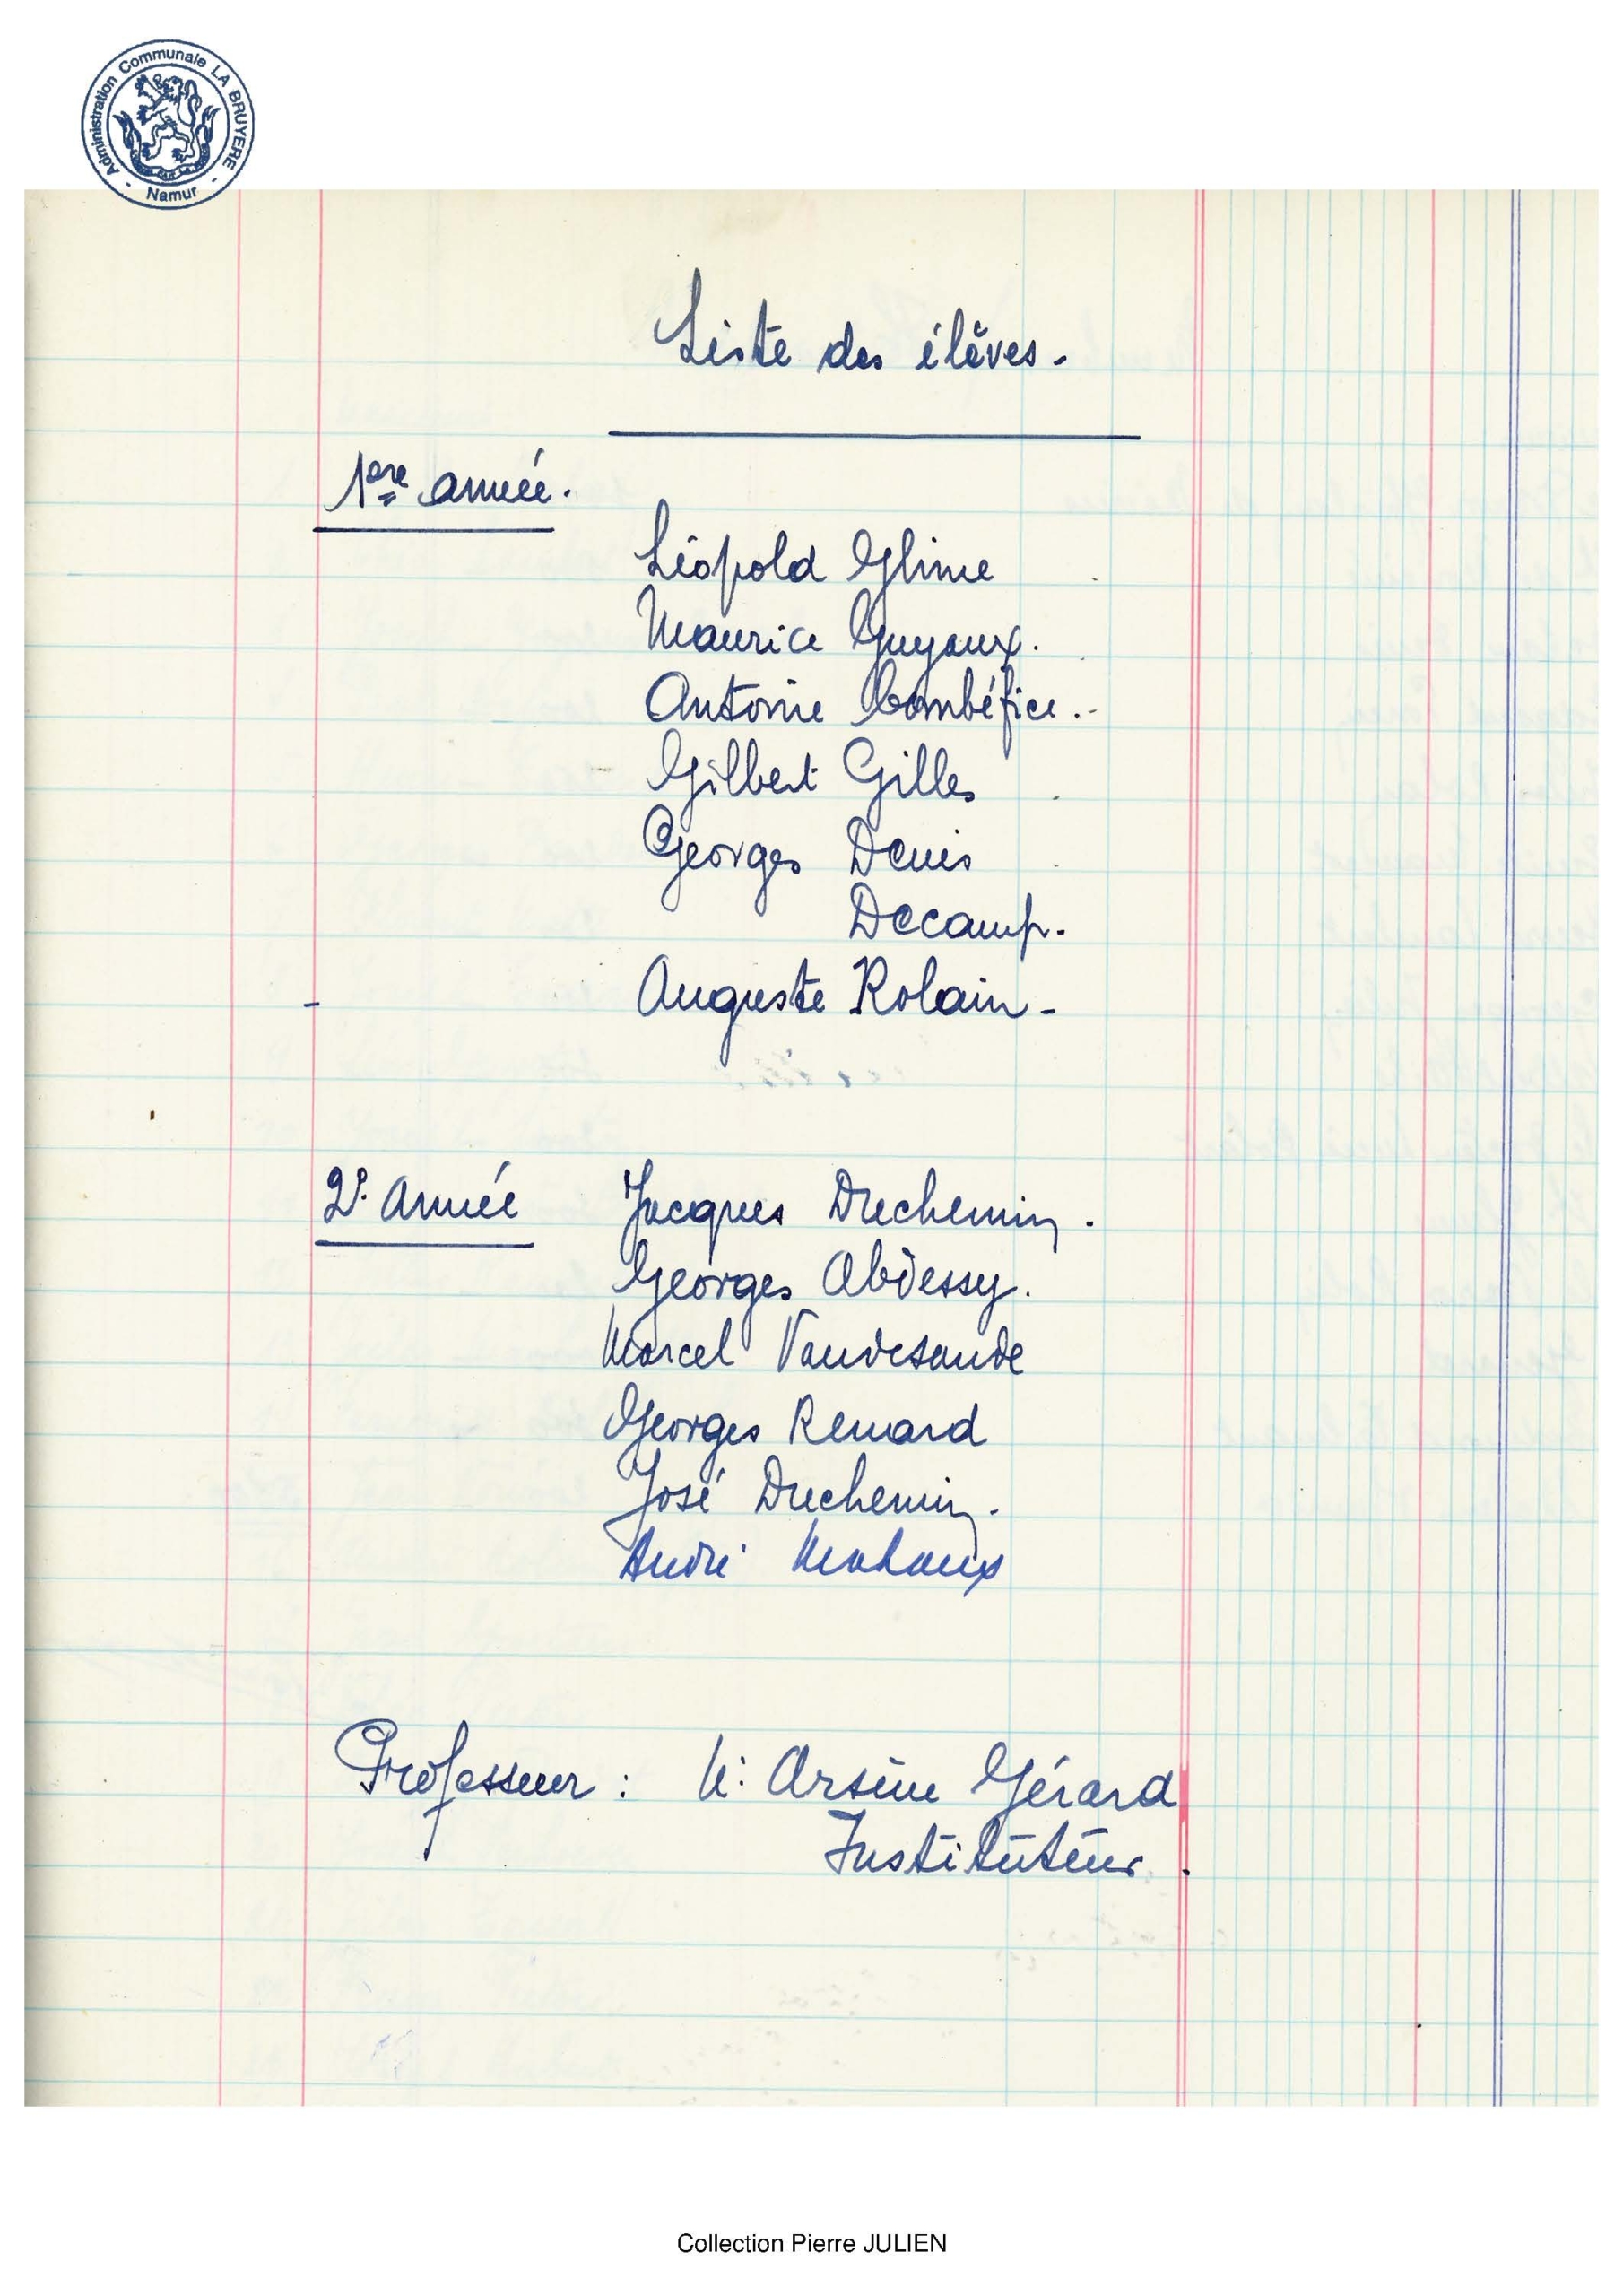 Administration Communale LA BRUYERE - Namur -
Liste des élèves.
1ère année.
Léopold Glime
Maurice Guyaux.
Antoine Combéfice.
Gilbert Gilles
Georges Denis
Decamp.
Auguste Rolain -
2e Année Jacques Duchemin.
Georges Abdessy.
Marcel Vandesande
Georges Renard
José Duchemin.
André Mahaux
Professeur : M. Arsène Gérard
Instituteur.
Collection Pierre JULIEN